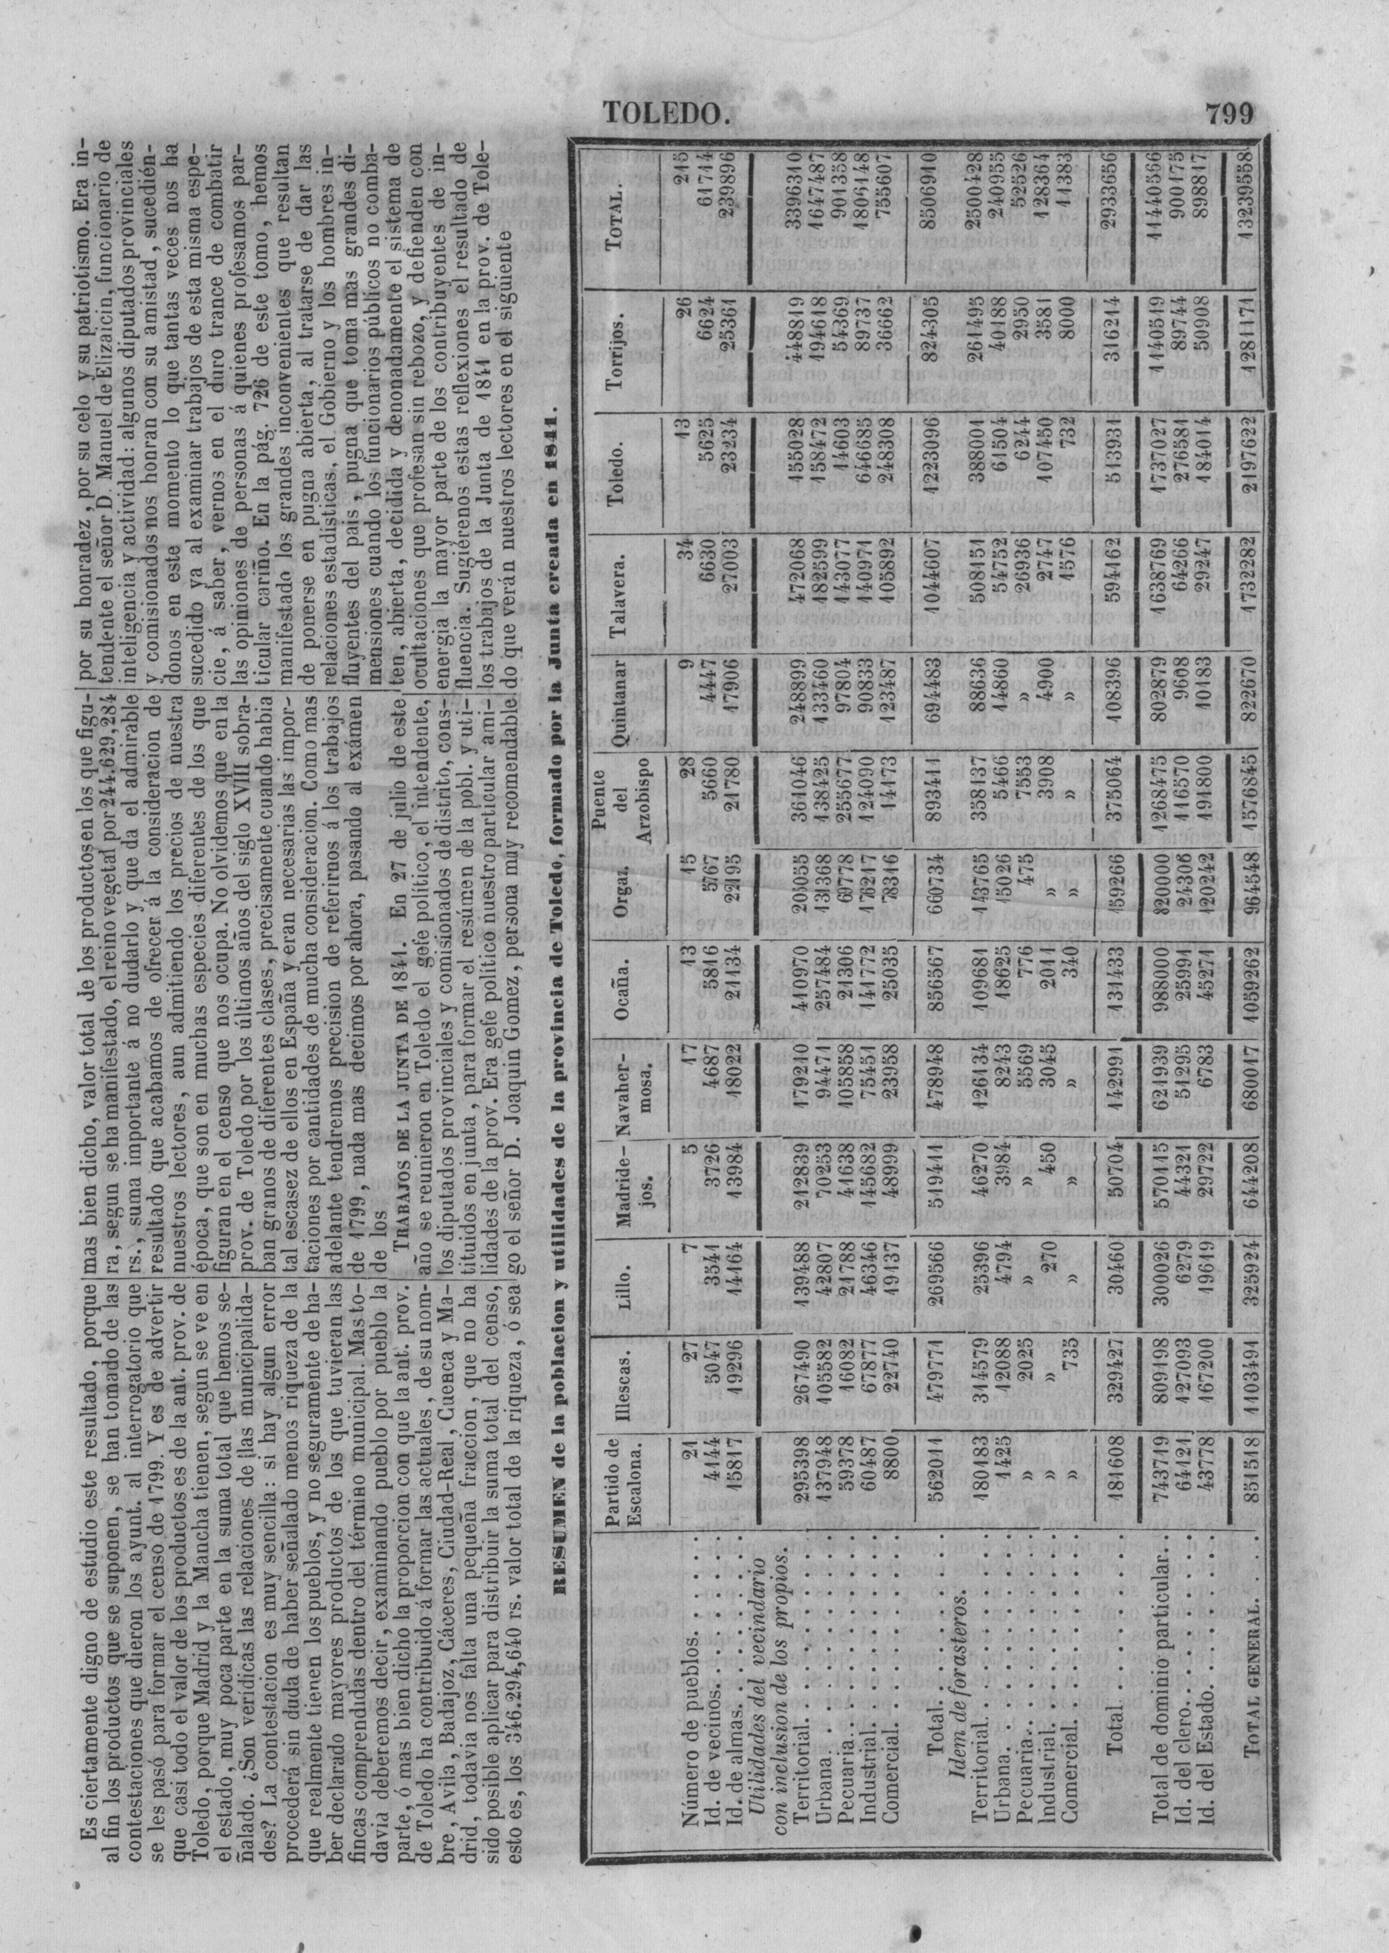 TOLEDO. 799
Es ciertamente digno de estudio este resultado, porque
al fin los productos que se suponen, se han tomado de las
contestaciones que dieron los ayunt. al interrogatorio que
se les pasó para formar el censo de 1799. Y es de advertir
que casi todo el valor de los productos es de la ant. prov. de
Toledo, porque Madrid y la Mancha tienen, segun se ve en
el estado, muy poca parte en la suma total que hemos se-
ñalado. ¿Son verídicas las relaciones de las municipalida-
des? La contestacion es muy sencilla: si hay algun error
procederá sin duda de haber señalado menos riqueza de la
que realmente tienen los pueblos, y no seguramente de ha-
ber declarado mayores productos de los que tuvieran las
fincas comprendidas dentro del término municipal. Mas to-
davia deberemos decir, examinando pueblo por pueblo la
parte, ó mas bien dicho la proporcion con que la ant. prov.
de Toledo ha contribuido á formar las actuales, de su nom-
bre, Avila, Badajoz, Cáceres, Ciudad-Real, Cuenca y Ma-
drid, todavia nos falta una pequeña fraccion, que no ha
sido posible aplicar para distribuir la suma total del censo,
esto es, los 346.294,640 rs. valor total de la riqueza, ó sea
mas bien dicho, valor total de los productos en los que figu-
ra, segun se ha manifestado, el reino vegetal por 244.629,284
rs., suma importante á no dudarlo y que da el admirable
resultado que acabamos de ofrecer á la consideracion de
nuestros lectores, aun admitiendo los precios de nuestra
época, que son en muchas especies diferentes de los que
figuran en el censo que nos ocupa. No olvidemos que en la
prov. de Toledo por los últimos años del siglo XVIII sobra-
ban granos de diferentes clases, precisamente cuando habia
tal escasez de ellos en España y eran necesarias las impor-
taciones por cantidades de mucha consideracion. Como mas
adelante tendremos precision de referirnos á los trabajos
de 1799, nada mas decimos por ahora, pasando al exámen
de los
TRABAJOS DE LA JUNTA DE 1841. En 27 de julio de este
año se reunieron en Toledo el gefe político, el intendente,
los diputados provinciales y comisionados de distrito, cons-
tituidos en junta, para formar el resúmen de la pobl. y uti-
lidades de la prov. Era gefe político nuestro particular ami-
go el señor D. Joaquin Gomez, persona muy recomendable
por su honradez, por su celo y su patriotismo. Era in-
tendente el señor D. Manuel de Elizaicin, funcionario de
inteligencia y actividad: algunos diputados provinciales
y comisionados nos honran con su amistad, sucedién-
donos en este momento lo que tantas veces nos ha
sucedido ya al examinar trabajos de esta misma espe-
cie, á saber, vernos en el duro trance de combatir
las opiniones de personas á quienes profesamos par-
ticular cariño. En la pág. 726 de este tomo, hemos
manifestado los grandes inconvenientes que resultan
de ponerse en pugna abierta, al tratarse de dar las
relaciones estadísticas, el Gobierno y los hombres in-
fluyentes del pais, pugna que toma mas grandes di-
mensiones cuando los funcionarios públicos no comba-
ten, abierta, decidida y denonadamente el sistema de
ocultaciones que profesan sin rebozo, y defienden con
energía la mayor parte de los contribuyentes de in-
fluencia. Sugiérenos estas reflexiones el resultado de
los trabajos de la Junta de 1841 en la prov. de Tole-
do que verán nuestros lectores en el siguiente
RESUMEN de la poblacion y utilidades de la provincia de Toledo, formado por la Junta creada en 1841.
Partido de Escalona. Illescas. Lillo. Madride-jos. Navaher-mosa. Ocaña. Orgaz. Puente del Arzobispo Quintanar Talavera. Toledo. Torrijos. TOTAL.
Número de pueblos. 21 27 7 5 17 13 15 28 9 34 13 26 215
Id. de vecinos. 4144 5047 3541 3726 4687 5816 5767 5660 4447 6630 5625 6624 61714
Id. de almas. 15817 19296 14464 13984 18022 21134 22195 21780 17906 27003 23234 25361 239896
Utilidades del vecindario
con inclusion de los propios
Territorial. 295398 267490 139488 212839 179210 410970 205055 361046 248899 472068 155028 448819 3396310
Urbana. 137948 105582 42807 70253 94471 257484 131368 138425 133460 182599 158472 194618 1647487
Pecuaria. 59378 16082 21788 41638 105858 21306 69778 255677 97804 143077 14603 54369 901358
Industrial. 60487 67877 46346 145682 75451 141772 176217 124090 90833 140971 646685 89737 1806148
Comercial. 8800 22740 19137 48999 23958 25035 78316 14173 123487 105892 248308 36662 755607
Total. 562011 479771 269566 519411 478948 856567 660734 893411 694483 1044607 1223096 824305 8506910
Idem de forasteros.
Territorial. 180183 314579 25396 46270 126134 109681 143765 358137 88636 508151 388001 261495 2500428
Urbana. 1425 12088 4794 3984 8243 18625 15026 5466 14860 54752 61504 40188 240955
Pecuaria. » 2025 » » 5569 776 475 7553 » 26936 6244 2950 52526
Industrial. » » 270 450 3045 2011 » 3908 4900 2747 107450 3581 128364
Comercial. » 735 » » » 340 » » » 1576 732 8000 11383
Total. 181608 329427 30460 50704 142991 131433 159266 375064 108396 594162 513931 316214 2933656
Total de dominio particular. 743719 809198 300026 570115 621939 988000 820000 1268475 802879 1638769 1737027 1140519 11440566
Id. del clero. 64121 127093 6279 44321 51295 25991 24306 116570 9608 64266 276581 89744 900175
Id. del Estado. 43778 167200 19619 29722 6783 45271 120242 191800 10183 29247 184014 50908 898817
TOTAL GENERAL. 851518 1103491 325924 644208 680017 1059262 964548 1576845 822670 1732282 2197622 1281171 13239558